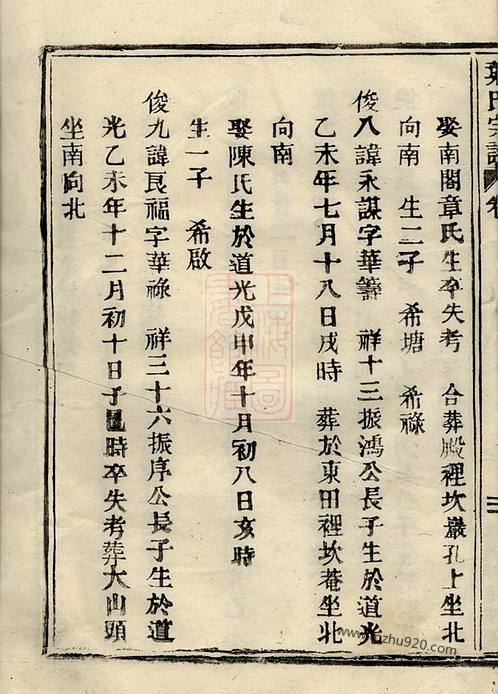 葉氏宗譜 卷
娶南閣章氏生卒失考 合葬殿裡坎巖孔上坐北
向南 生二子 希塘 希祿
俊八諱永謀字華籌 祥十三振鴻公長子生於道光
乙未年七月十八日戌時 葬於東田裡坎菴坐北
向南
娶陳氏生於道光戊申年十月初八日亥時
生一子 希啟
俊九諱良福字華祿 祥三十六振序公長子生於道
光乙未年十二月初十日子時卒失考葬大山頭
坐南向北
上海圖
書館藏
www.jiazhu920.com